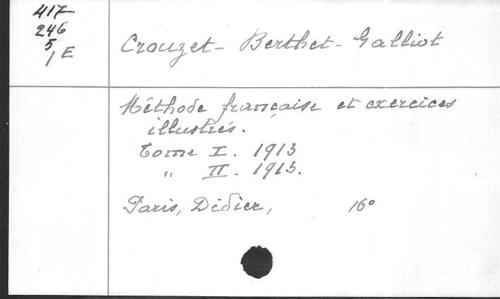 417
246
5
1 E
Crouzet - Berthet - Galliot
Méthode française et exercices
illustrés.
Tome I. 1913
„ II. 1913.
Paris, Didier, 16°